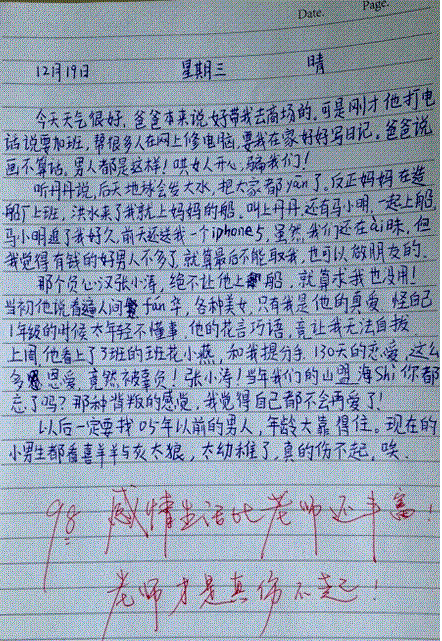 Date. Page.
12月19日 星期三 晴
今天天气很好,爸爸本来说好带我去商场的,可是刚才他打电
话说要加班,帮很多人在网上修电脑,要我在家好好写日记。爸爸说
画不算话,男人都是这样!哄女人开心,骗我们!
听丹丹说,后天地球会发大水,把大家都yān了。反正妈妈在造
船厂上班,洪水来了我就上妈妈的船。叫上丹丹,还有马小明,一起上船,
马小明追了我好久,前天还送我一个iphone5,虽然我们还在ai昧,但
我觉得有钱的好男人不多了,就算最后不能取我,也可以做朋友的。
那个负心汉张小涛,绝不让他上船,就算求我也没用!
当初他说看遍人间fán华,各种美女,只有我是他的真爱,怪自己
1年级的时候太年轻不懂事,他的花言巧语,竟让我无法自拔
上周他看上了3班的班花小燕,和我提分手,130天的恋爱,这么
多恩爱,竟然被辜负!张小涛!当年我们的山盟海Shi你都
忘了吗?那种背叛的感觉,我觉得自己都不会再爱了!
以后一定要找05年以前的男人,年龄大靠得住。现在的
小男生都看喜羊羊与灰太狼,太幼稚了,真的伤不起,唉。
98 感情生活比老师还丰富!
老师才是真伤不起!